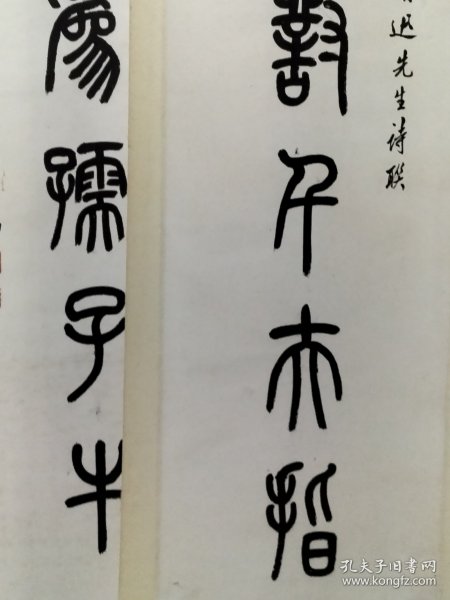 迅先生诗联
對千夫指
為孺子牛
孔夫子旧书网
www.kongfz.com